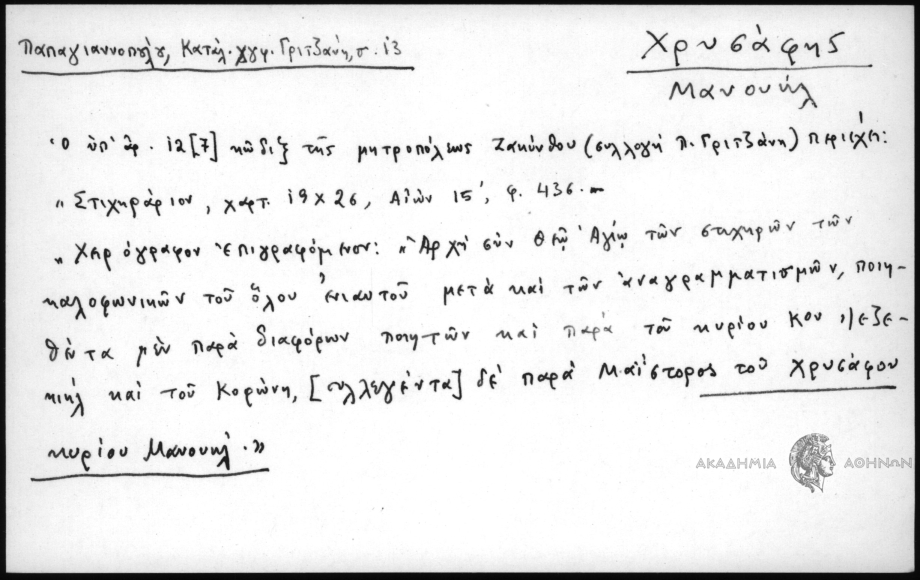 Παπαγιαννοπούλου, Κατάλ. χγφ. Γριτζάνη, σ. 13
Χρυσάφης
Μανουήλ
Ὁ ὑπ' ἀρ. 12 [7] κῶδιξ τῆς μητροπόλεως Ζακύνθου (συλλογή Π. Γριτζάνη) περιέχει:
„ Στιχηράριον, χαρτ. 19 x 26, Αἰών 15', φ. 436.–
„ Χειρόγραφον ἐπιγραφόμενον: „Ἀρχή σύν Θεῷ Ἁγίῳ τῶν στιχηρῶν τῶν
καλοφωνικῶν τοῦ ὅλου ἐνιαυτοῦ μετά καί τῶν ἀναγραμματισμῶν, ποιη-
θέντα μέν παρά διαφόρων ποιητῶν καί παρά τοῦ κυρίου Κου Ἰεζε-
κιήλ καί τοῦ Κορώνη, [συλλεγέντα] δέ παρά Μαΐστορος τοῦ Χρυσάφου
κυρίου Μανουήλ.»
ΑΚΑΔΗΜΙΑ ΑΘΗΝΩΝ